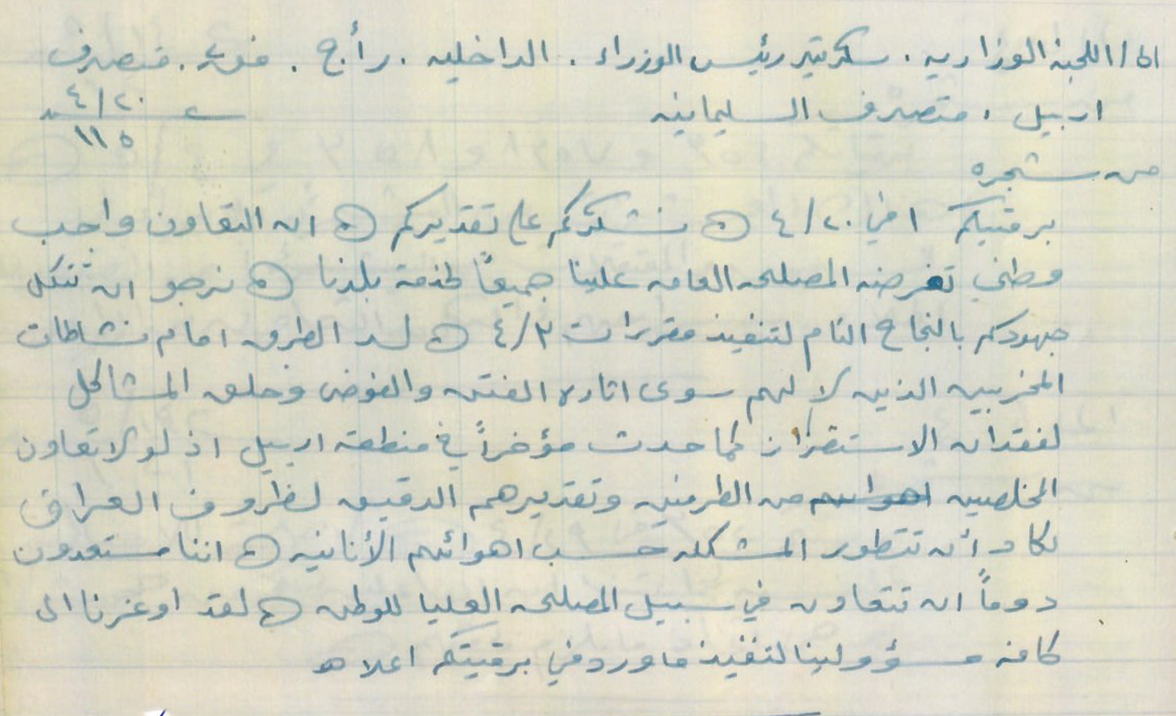 الى / اللجنة الوزاريه . سكرتير رئيس الوزراء . الداخليه . ر أ ج . ف . متصرف
اربيل . متصرف السليمانيه
٤/٢٠
١١٥
من شجره
برقيتكم ا في ٤/٢٠ نشكركم على تقديركم ان التعاون واجب
وطني تفرضه المصلحه العامه علينا جميعاً لخدمة بلدنا نرجو ان تتكلل
جهودكم بالنجاح التام لتنفيذ مقررات ٤/٣ لسد الطرق امام نشاطات
المخربين الذين لا لهم سوى اثاره الفتن والفوضى وخلق المشاكل
لفقدان الاستقرار كما حدث مؤخراً في منطقة اربيل اذ لولا تعاون
المخلصين من الطرفين وتقديرهم الدقيق لظروف العراق
لكاد أن تتطور المشكله حسب اهوائهم الأنانيه اننا مستعدون
دوماً ان نتعاون في سبيل المصلحه العليا للوطن لقد اوعزنا الى
كافه مسؤولينا لتنفيذ ماورد في برقيتكم اعلاه